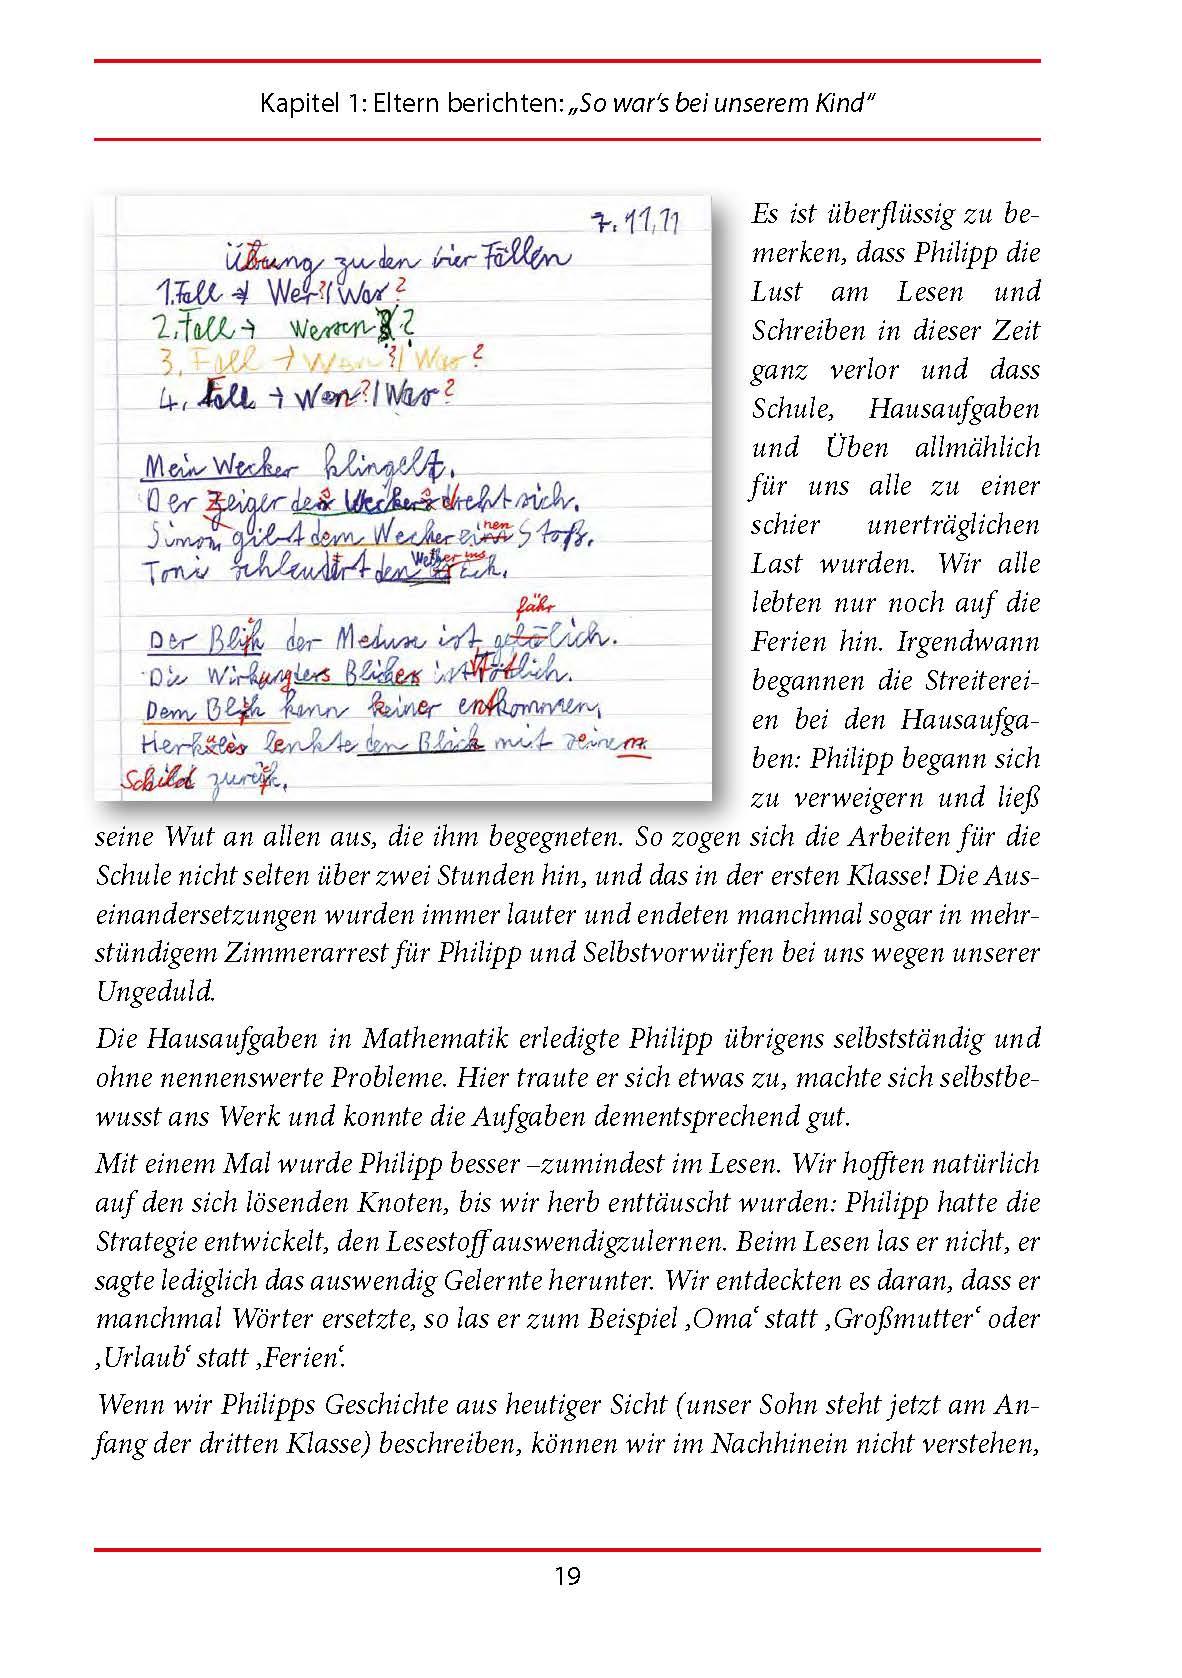 Kapitel 1: Eltern berichten: „So war's bei unserem Kind“
7.11.11
Übung zu den vier Fällen
1. Fall → Wer?/Was?
2. Fall → Wessen?
3. Fall → Wen?/Was?
4. Fall → Wen?/Was?
Mein Wecker klingelt.
Der Zeiger des Weckers dreht sich.
Simon gibt dem Wecker einen Stoß.
Toni den
fähr
Der Blick der Meduse ist lich.
Die Wirkung Blickes ist tötlich.
Dem Blick kann keiner entkommen.
Herkules lenkte den Blick mit seinem
Schild zurück.
Es ist überflüssig zu be-
merken, dass Philipp die
Lust am Lesen und
Schreiben in dieser Zeit
ganz verlor und dass
Schule, Hausaufgaben
und Üben allmählich
für uns alle zu einer
schier unerträglichen
Last wurden. Wir alle
lebten nur noch auf die
Ferien hin. Irgendwann
begannen die Streiterei-
en bei den Hausaufga-
ben: Philipp begann sich
zu verweigern und ließ
seine Wut an allen aus, die ihm begegneten. So zogen sich die Arbeiten für die
Schule nicht selten über zwei Stunden hin, und das in der ersten Klasse! Die Aus-
einandersetzungen wurden immer lauter und endeten manchmal sogar in mehr-
stündigem Zimmerarrest für Philipp und Selbstvorwürfen bei uns wegen unserer
Ungeduld.
Die Hausaufgaben in Mathematik erledigte Philipp übrigens selbstständig und
ohne nennenswerte Probleme. Hier traute er sich etwas zu, machte sich selbstbe-
wusst ans Werk und konnte die Aufgaben dementsprechend gut.
Mit einem Mal wurde Philipp besser –zumindest im Lesen. Wir hofften natürlich
auf den sich lösenden Knoten, bis wir herb enttäuscht wurden: Philipp hatte die
Strategie entwickelt, den Lesestoff auswendigzulernen. Beim Lesen las er nicht, er
sagte lediglich das auswendig Gelernte herunter. Wir entdeckten es daran, dass er
manchmal Wörter ersetzte, so las er zum Beispiel ‚Oma‘ statt ‚Großmutter‘ oder
‚Urlaub‘ statt ‚Ferien‘.
Wenn wir Philipps Geschichte aus heutiger Sicht (unser Sohn steht jetzt am An-
fang der dritten Klasse) beschreiben, können wir im Nachhinein nicht verstehen,
19